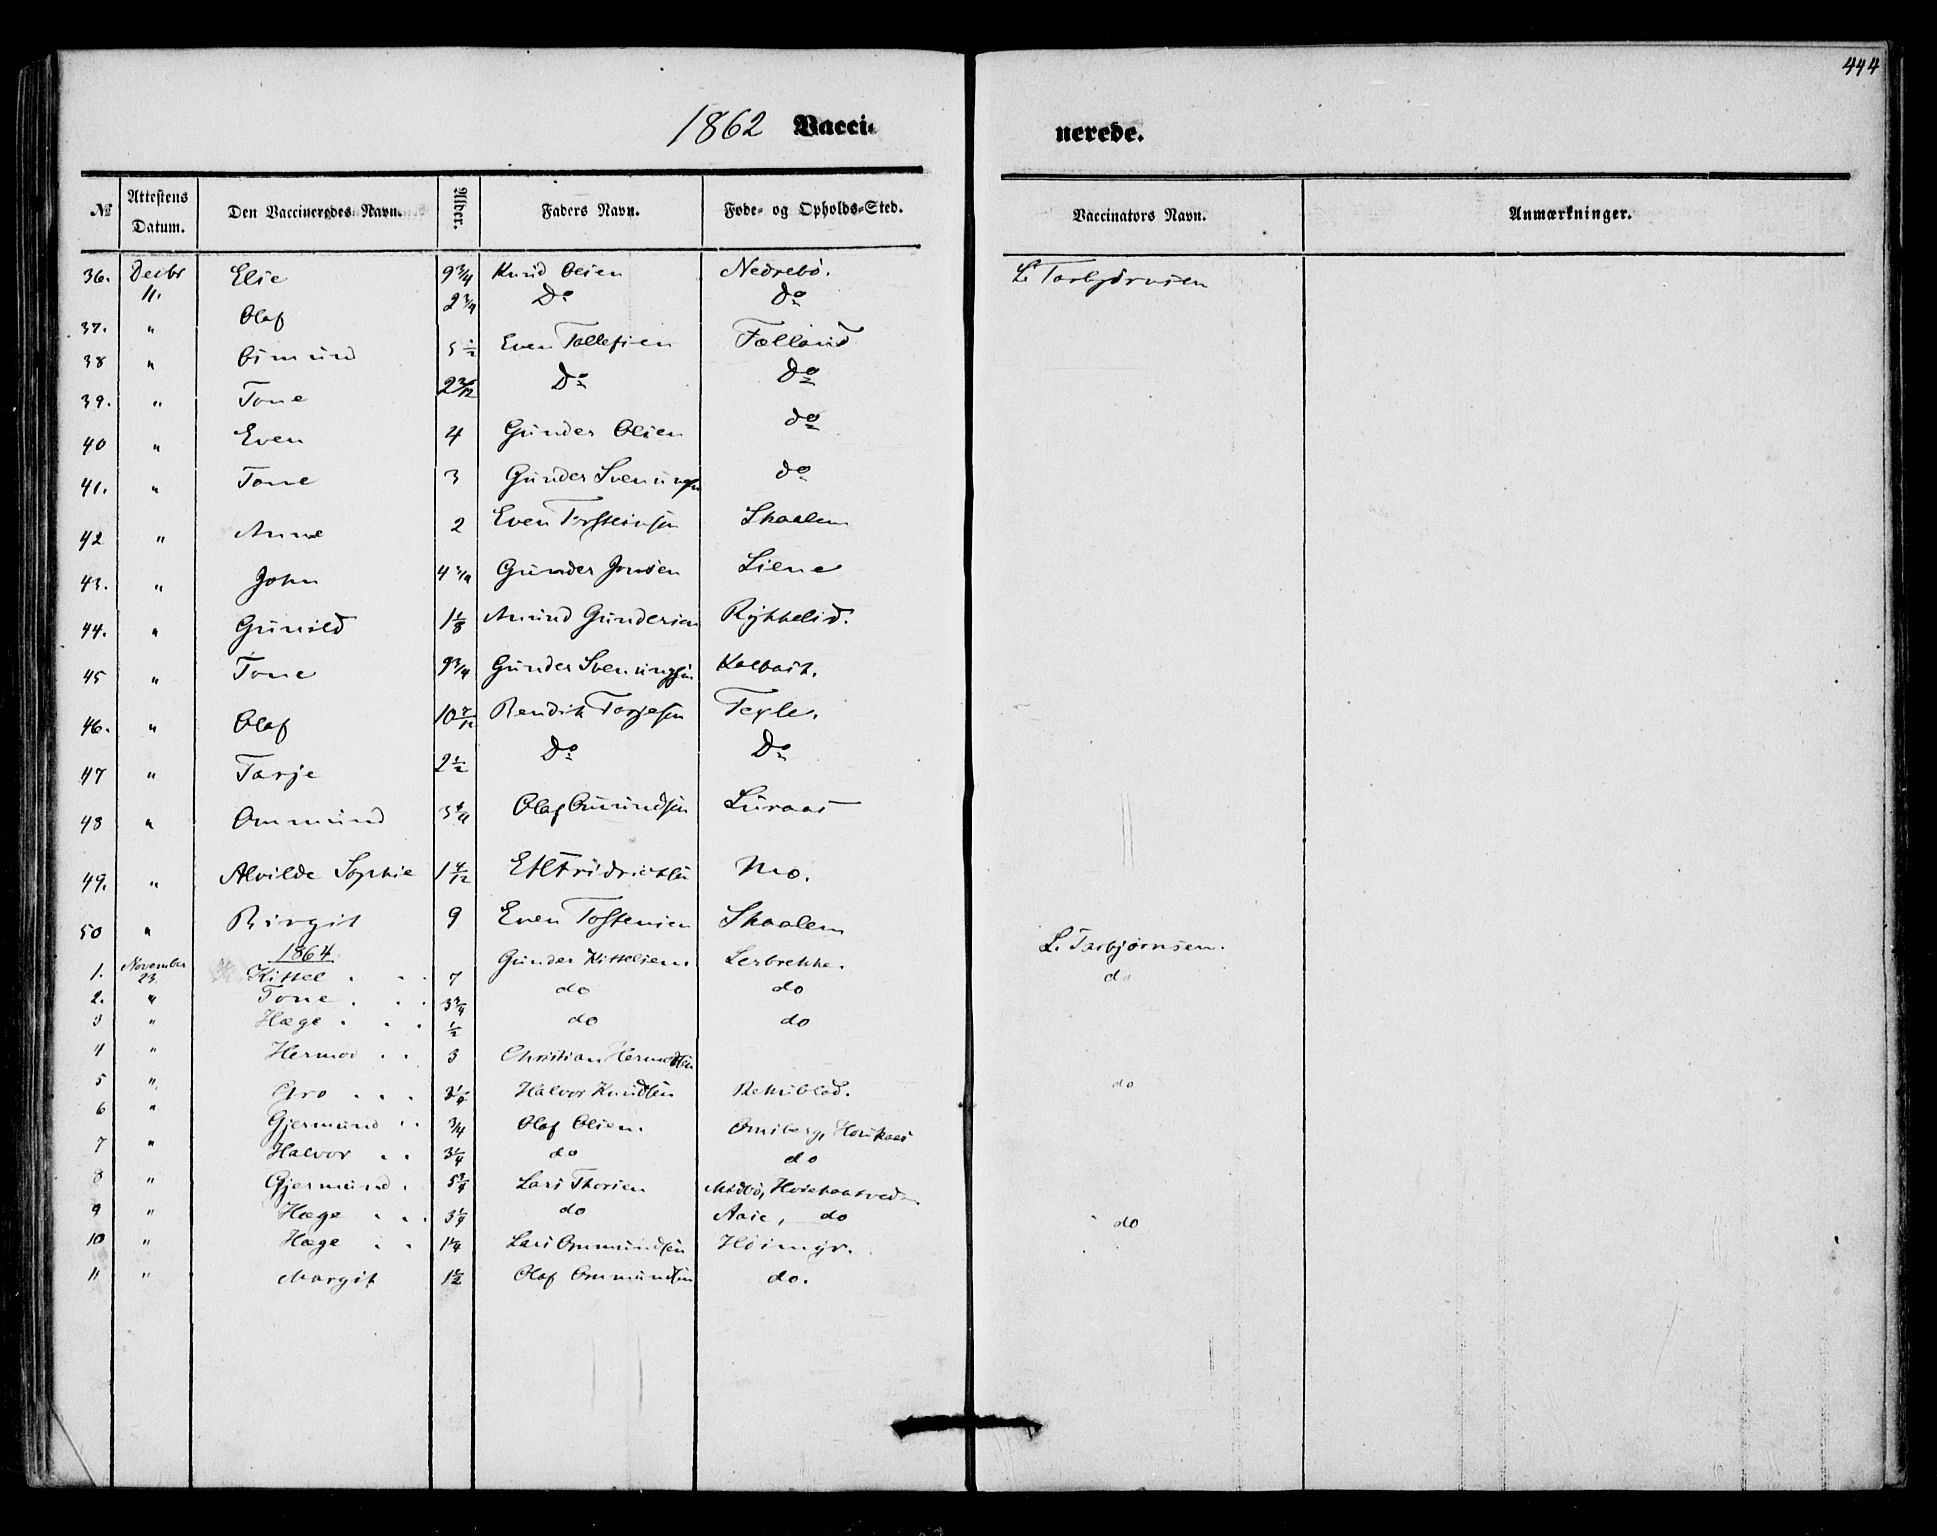 444
1862 Vacci- nerede.
№ Attestens Datum. Den Vaccineredes Navn. Alder. Faders Navn. Føde- og Opholds-Sted. Vaccinators Navn. Anmærkninger.
36. Decbr 11. Elie 9 3/4 Knud Olsen Nedrebö. L. Tarbjørnsen
37. " Olaf 2 3/4 Do do
38 " Osmund 5 1/2 Even Tollefsen Fælland
39. " Tone Do do
40 " Even 4 Gunder Olsen do
41. " Tone 3 Gunder Svenungsen do
42 " Anne 2 Even Torsteinsen Skaalem
43. " John 4 3/4 Gunder Jonsen Liene
44. " Gunild 1 1/8 Amund Gundersen Rykkelid.
45 " Tone 9 3/4 Gunder Svenungsen
46. " Olaf Bendik Tarjesen
47 " Tarje 2 1/2 Do Do
48 " Ommund 3 1/4 Olaf Omundsen Luraas
49. " Alvilde Sophie 1 4/12 Mo.
50 " Birgit 9 Even Tostensen Skaalem
1864
1. November 23 Kittel 7 Gunder Kittelsen Lerbrekke. L. Tarbjørnsen.
2. " Tone 3 3/4 do do do
3 " Hæge 1/2 do do
4 " Hermod 3 Christian Hermodsen
5 " Gro Halvor Knudsen do
6 " Gjermund 3/4 Olaf Olsen.
7 " Halvor 3 1/4 do do
8 " Gjermund 5 3/4 Lars Thorsen
9 " Hæge 3 1/4 do Aase, do do
10 " Hæge 1 1/4 Lars Ommundsen Höimyr.
11 " Margit 1 1/2 Olaf Ommundsen do.